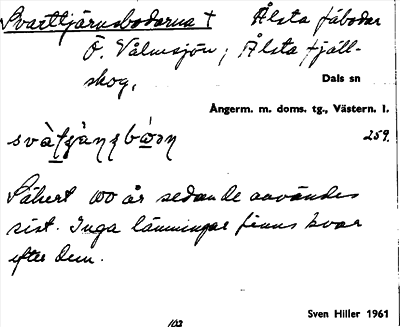 Svarttjärnsbodarna † Ålsta fäbodar
Ö. Vålmsjön, Ålsta fjäll-
skog,
Dals sn
Ångerm. m. doms. tg., Västern. l.
259.
Säkert 100 år sedan de användes
sist. Inga lämningar finns kvar
efter dem.
Sven Hiller 1961
103